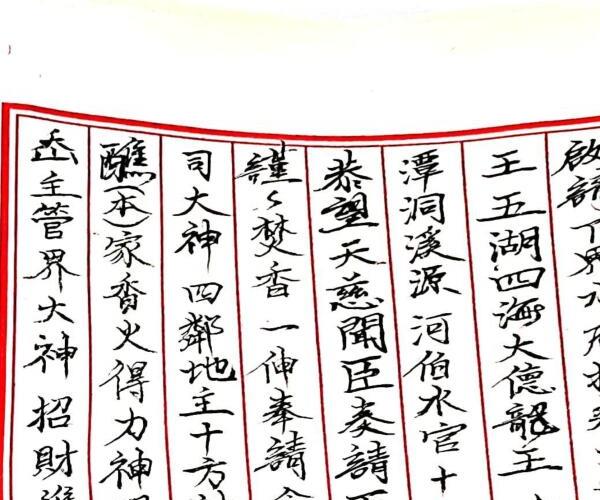 啟請下界水府扶桑
王五湖四海大德龍王
潭洞溪源河伯水官十
恭望天慈聞臣奏請
謹々焚香一伸奉請
司大神四鄰地主十方
醮(本)家香火得力神
岳主管界大神招財